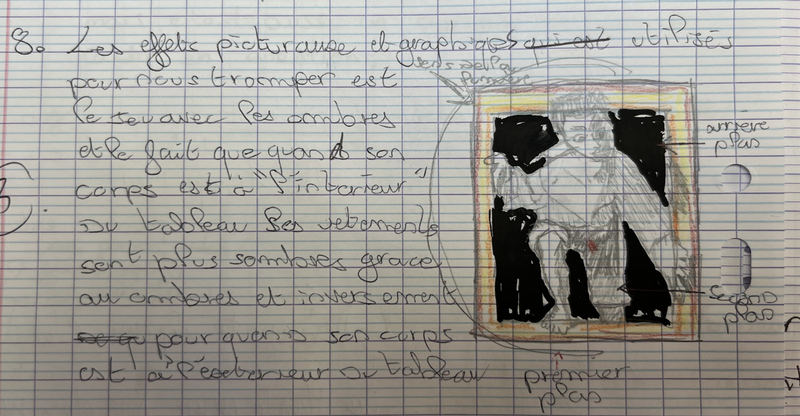 8. Les effets picturause et graphiques qui est utilisés
pour nous tromper est
le jeu avec les ombres
et le fait que quand son
corps est à "l'interieur"
Du tableau Ses vetements
sont plus sombres grace
au ombres et inversement
pour quand son corps
est à l'exterieur Du tableau
sens de la
lumière
arrière
plan
second
plan
premier
plan